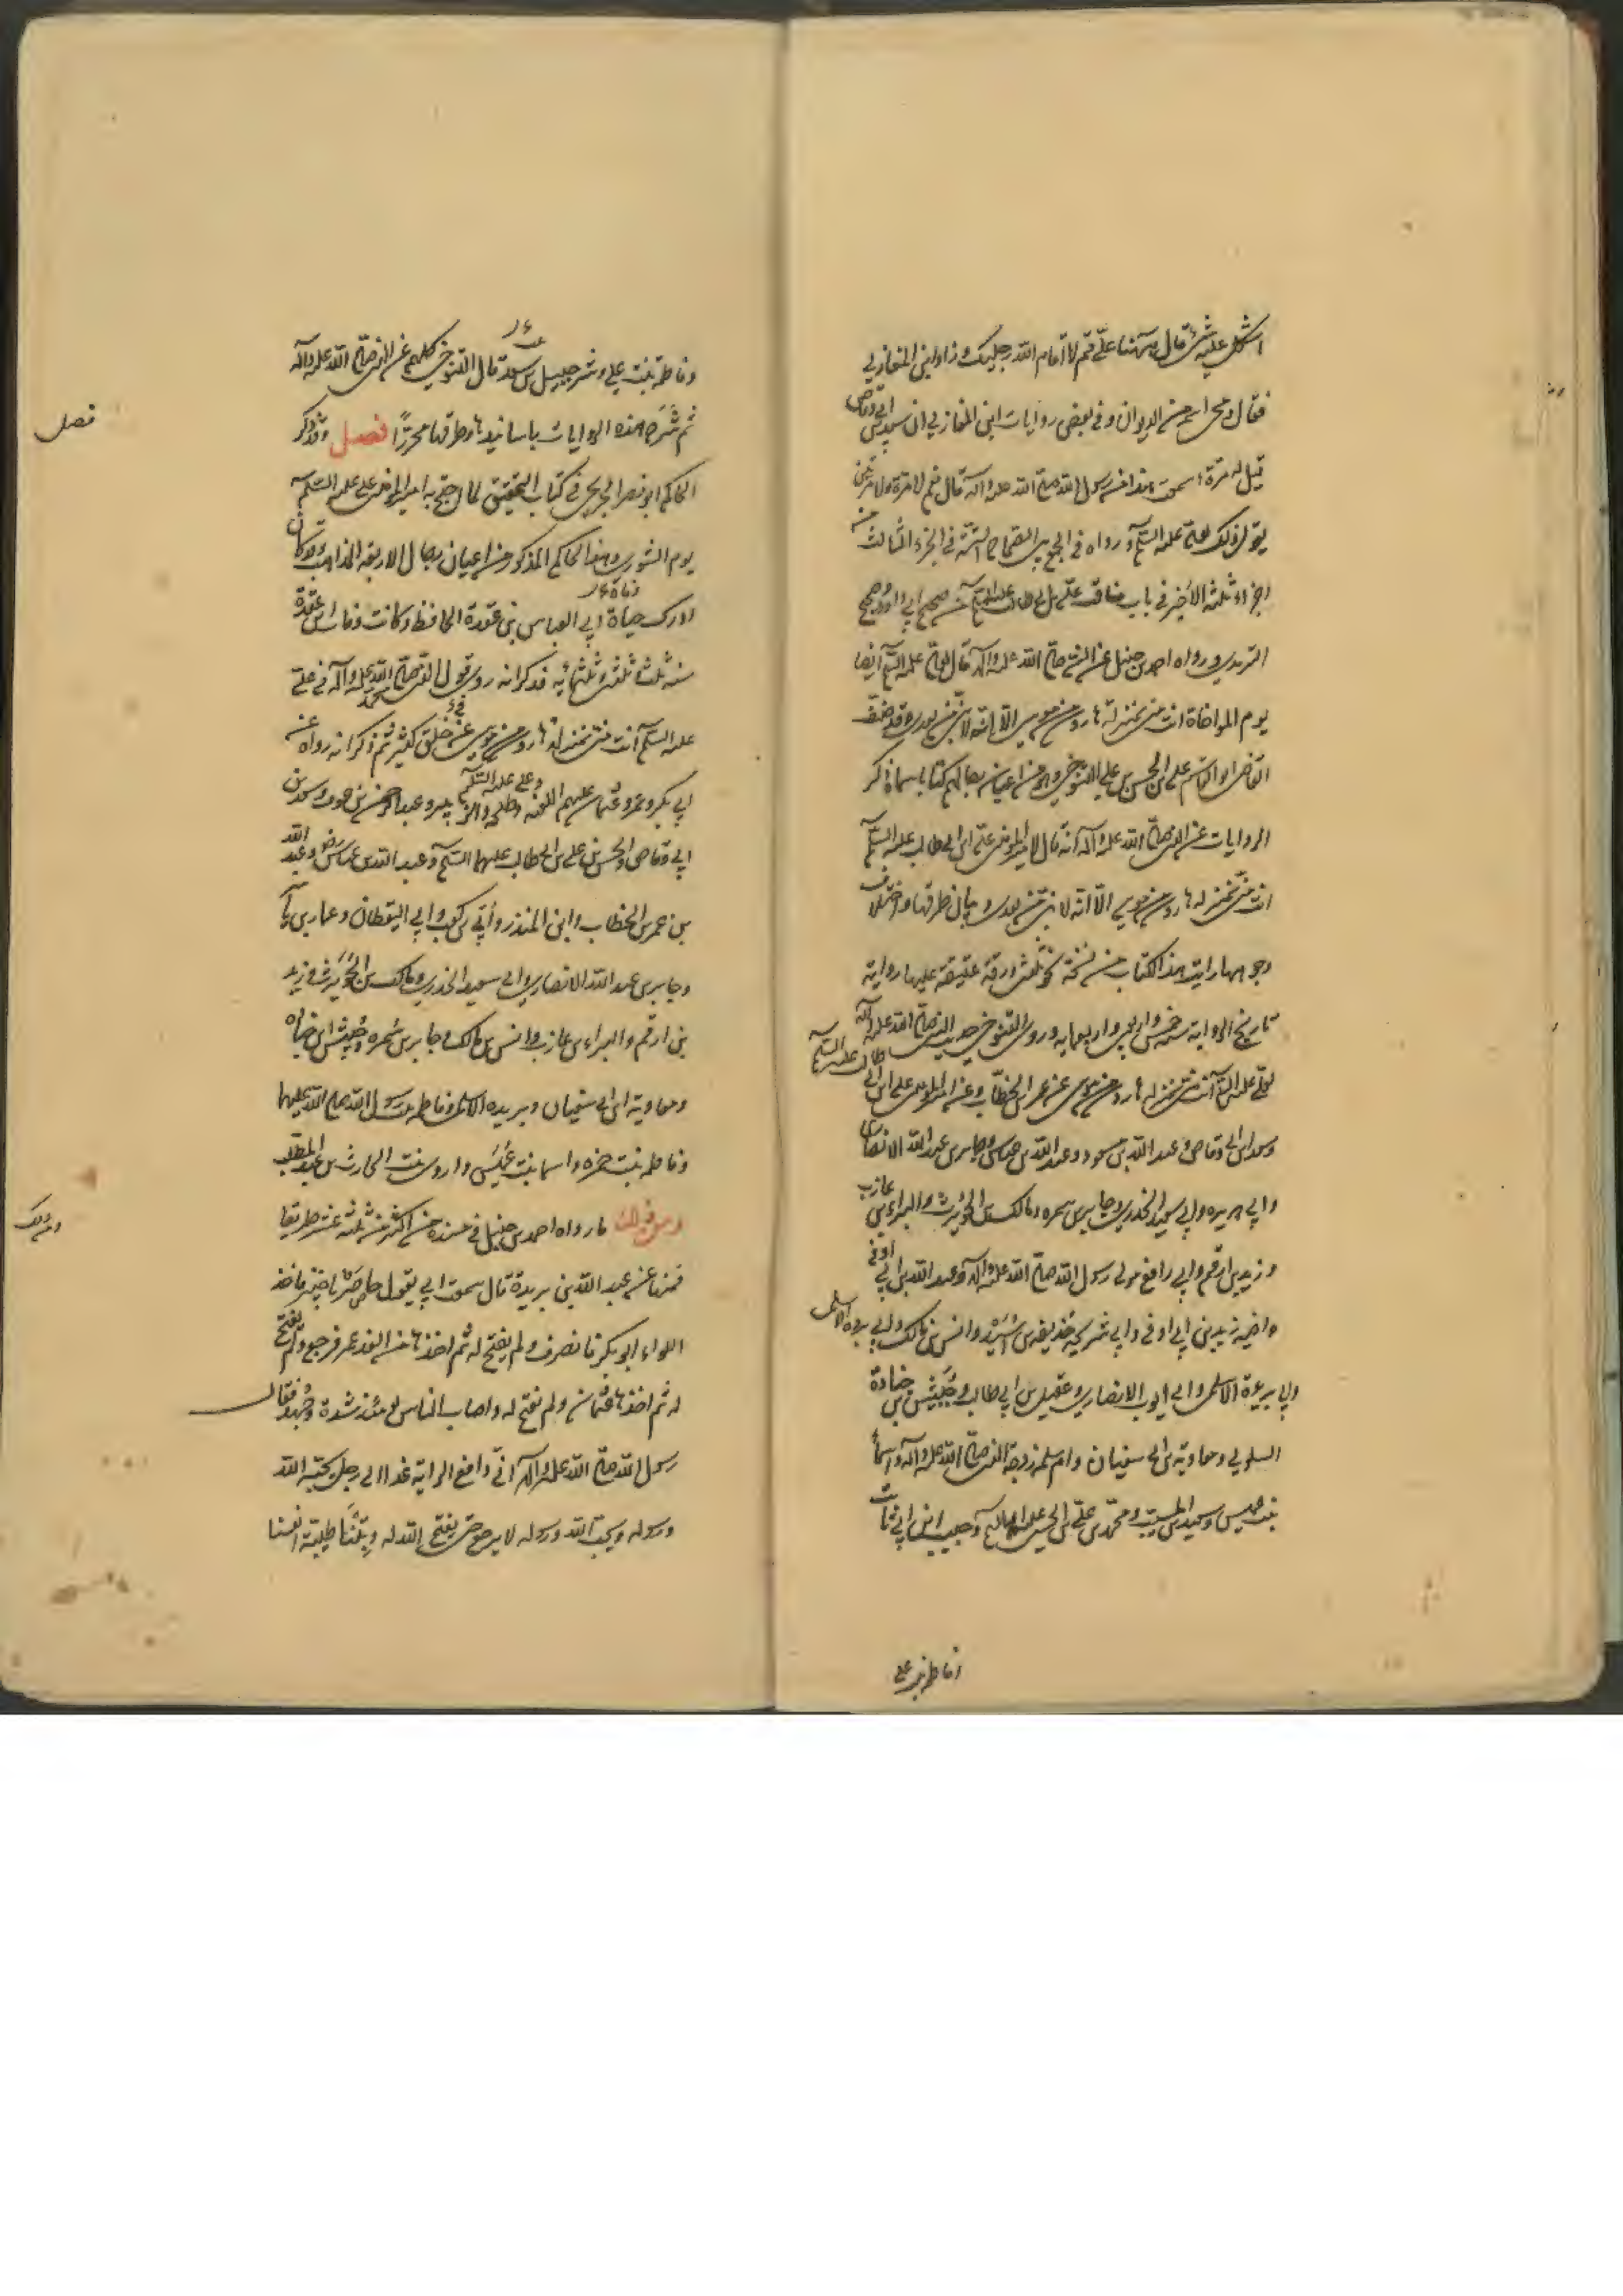 اشكل عليه شئ قال ههنا علىّ قم لا اقام الله رجليك وزاد ابن المغازلي
فقال ومحى اسمه من الديوان وفي بعض روايات ابن المغازلي ان سعد بن ابي وقاص
قيل له مرة سمعت هذا من رسول الله صلى الله عليه وآله قال نعم لا مرة ولا مرتين
يقول ذلك لعلي عليه السلام ورواه في الجمع بين الصحاح الستة في الجزء الثالث من
اجزاء ثلثة الاخير في باب مناقب علي بن ابي طالب عليه السلام من صحيح ابي داود وصحيح
الترمذي ورواه احمد بن حنبل عن النبي صلى الله عليه وآله قال لعلي عليه السلام ايضا
يوم المواخاة انت مني بمنزلة هارون من موسى الا انه لا نبي من بعدي وقد صنف
القاضي ابو القاسم علي بن المحسن بن علي التنوخي وهو من اعيان رجالهم كتابا سماه ذكر
الروايات عن النبي صلى الله عليه وآله انه قال لامير المؤمنين علي ابن ابي طالب عليه السلام
انت مني بمنزلة هارون من موسى الا انه لا نبي من بعدي وبيان طرقها واختلاف
وجوهها رايت هذا الكتاب من نسخة نحو ثلثين ورقة عتيقة عليها رواية
تاريخ الرواية سنة خمس واربعين واربعمايه وروى التنوخي حديث النبي صلى الله عليه وآله
لعلي عليه السلام انت مني بمنزلة هارون من موسى عن عمر بن الخطاب وعن امير المؤمنين علي ابن ابي طالب عليه السلام
وسعد ابن ابي وقاص وعبد الله بن مسعود وعبد الله بن عباس وجابر بن عبد الله الانصاري
وابي هريره وابي سعيد الخدري وجابر بن سمره ومالك بن الحويرث والبراء بن عازب
وزيد بن ارقم وابي رافع مولى رسول الله صلى الله عليه وآله وعبد الله بن ابي اوفى
واخيه زيد بن ابي اوفى وابي شريحة حذيفة بن اسيد وانس بن مالك وابي برده الاسلمي
وابي بريدة الاسلمي وابي ايوب الانصاري وعقيل بن ابي طالب وحبيش بن جنادة
السلولي ومعاوية بن ابي سفيان وام سلمة زوجة النبي صلى الله عليه وآله واسماء
بنت عميس وسعيد بن المسيب ومحمد بن علي بن الحسين عليهم السلام وحبيب ابن ابي ثابت
وفاطمة بنت علي
وفاطمة بنت علي وشرحبيل بن سعد قال التنوخي كلهم عن النبي صلى الله عليه وآله
ثم شرح هذه الروايات باسانيدها وطرقها محررًا فصل وقد ذكر
الحاكم ابو نصر الحربي في كتاب التحقيق لما احتج به امير المؤمنين علي عليه السلام
يوم الشورى وهذا الحاكم المذكور من اعيان رجال الاربعة المذاهب وقد كان
ادرك حياة ابي العباس بن عقدة الحافظ وكانت وفاة ابن عقدة
سنة ثلث وثلثين وثلثمائه فذكر انه روى قول النبي صلى الله عليه وآله في علي
عليه السلام انت مني بمنزلة هارون من موسى عن خلق كثير ثم ذكر انه رواه عن
ابي بكر وعمر وعثمان وعلي عليه السلام وطلحة والزبير وعبد الرحمن بن عوف وسعد بن
ابي وقاص والحسن بن علي بن ابي طالب عليهما السلام وعبد الله بن عباس وعبد الله
بن عمر بن الخطاب وابن المنذر وأبي بن كعب وابي اليقظان وعمار بن ياسر
وجابر بن عبد الله الانصاري وابي سعيد الخدري ومالك بن الحويرث وزيد
بن ارقم والبراء بن عازب وانس بن مالك وجابر بن سمره وحبيش ابن جناده
ومعاوية ابن ابي سفيان وبريده الاسلمي وفاطمه بنت رسول الله صلى الله عليهما
وفاطمه بنت حمزه واسما بنت عميس واروى بنت الحارث بن عبد المطلب
ومن ذلك ما رواه احمد بن حنبل في مسنده من اكثر من ثلثه عشر طريقا
فمنها عن عبد الله بن بريدة قال سمعت ابي يقول حاصرنا خيبر فاخذ
اللواء ابو بكر فانصرف ولم يفتح له ثم اخذها من الغد عمر فرجع ولم يفتح
له ثم اخذها عثمان ولم يفتح له واصاب الناس يومئذ شدة وجهد فقال
رسول الله صلى الله عليه وآله اني دافع الراية غدا الى رجل يحبه الله
ورسوله ويحب الله ورسوله لا يرجع حتى يفتح الله له وبتنا طيبة انفسنا
فصل
ومن ذلك